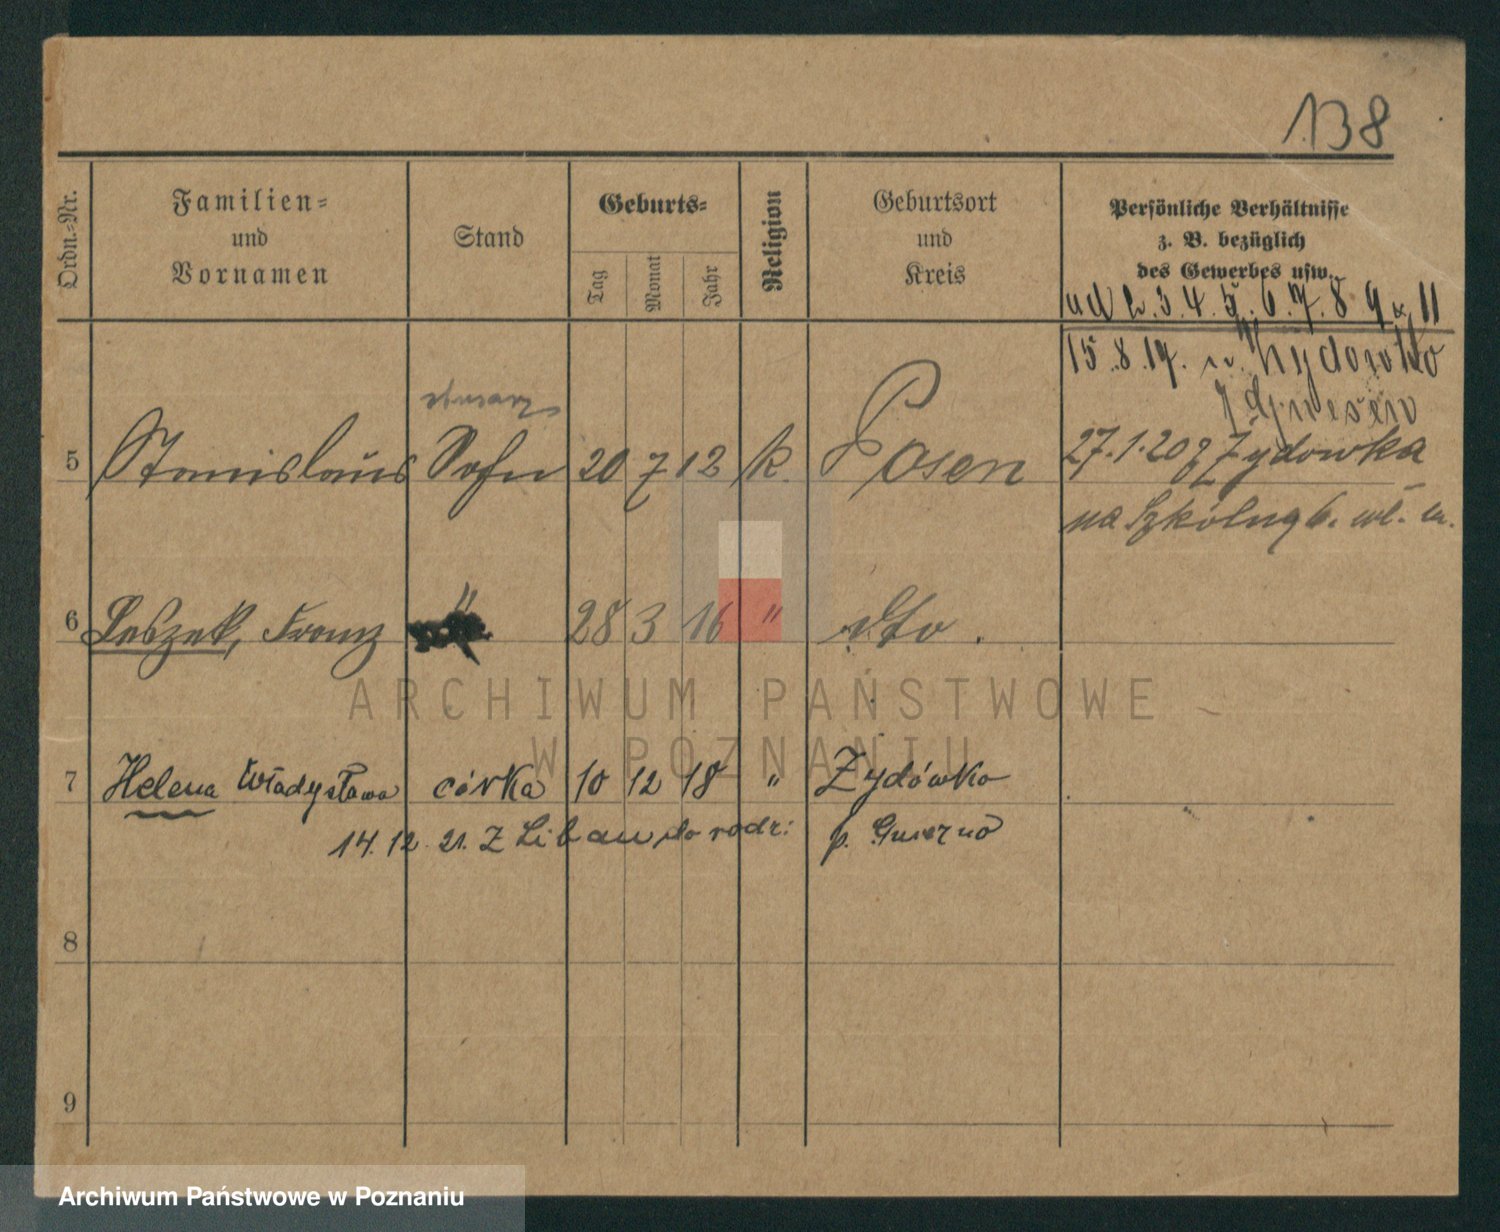 138
Ordn.-Nr.
Familien- und Vornamen
Stand
Geburts-
Tag
Monat
Jahr
Religion
Geburtsort und Kreis
Persönliche Verhältnisse
z. B. bezüglich
des Gewerbes usw.
3. 4. 5. 6. 7. 8 9 11
15.8.19.
5 Stanislaus Sohn 20 7 12 k. Posen
27.1.20 z Żydówka
na Szkólną 6.
6 Leszek, Franz " 28 3 16 " dto.
7 Helena Władysława córka 10 12 18 " Żydówko
14.12.21. Z Libau do rodz: p. Gniezno
8
9
ARCHIWUM PAŃSTWOWE
W POZNANIU
Archiwum Państwowe w Poznaniu